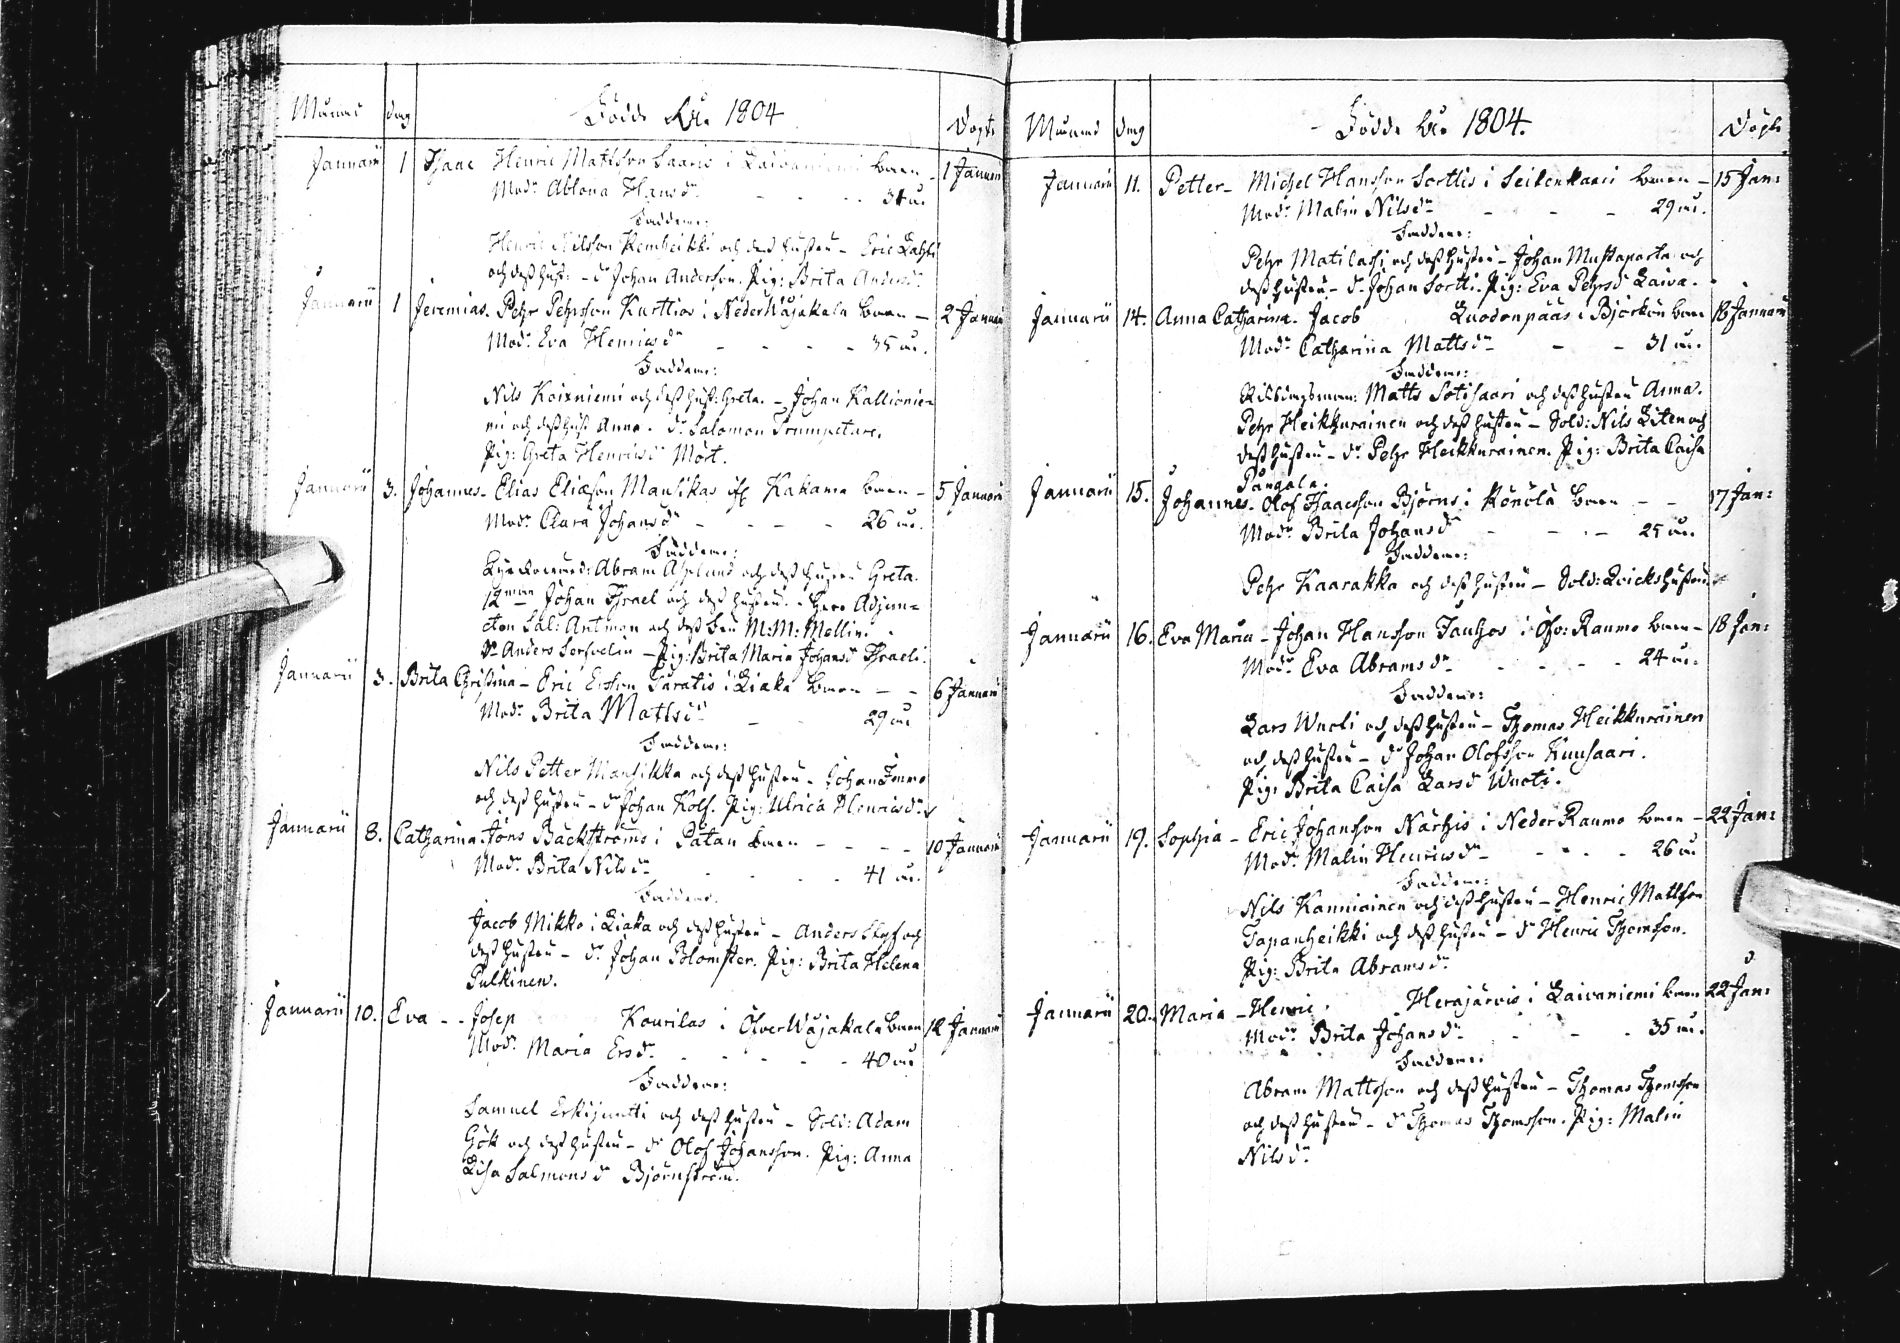 Månad dag Födde År 1804 Döpte
Januarii 1 Isaac Henric Mattsson Saaris i Laivaniemi barn - 1 Januarii
Mod: Abluna Hansdr - - - 31 år.
Faddrar:
Henric Nilsson Kembeikki och dess hustru - Eric Lahti
och dess hust: - dr Johan Andersson. Pig: Brita Andersdr
Januarii 1 Jeremias. Pehr Pehrsson Kurttios i Neder Wojakala barn - 2 Januarii
Mod: Eva Henricsdr - - - - 35 år.
Faddrar:
Nils Koivuniemi och dess hust: Greta. - Johan Kallionie-
mi och dess hust Anna. dr Salomon Trumpetare.
Pig: Greta Henricsdr Mört.
Januarii 3. Johannes - Elias Eliæson Mansikas ifr Kakama barn - 5 Januarii
Mod: Clara Johansdr - - - - 26 år.
Faddrar:
Abram Asplund och dess hustru Greta.
12man Johan Israel och dess hustru. - Herr Adjunc-
cten Sal: Antman och dess Fru M: M: Mellin.
dr Anders Servelin - Pig: Brita Maria Johansdr Israeli.
Januarii 3. Brita Christina - Eric Ersson Saratis i Liaka barn - - 6 Januarii
Mod: Brita Mattsdr - - 29 år
Faddrar:
Nils Petter Mansikka och dess hustru - Johan Immo
och dess hustru - dr Johan Kolf. Pig: Ulrica Henricsdr
Januarii 8. Catharina Jöns Bäckströms i Pätan barn - - - - 10 Januarii
Mod: Brita Nilsdr - - - - 41 år.
Faddrar.
Jacob Mikko i Liaka och dess hustru - Anders Slyf och
dess hustru - dr Johan Blomster. Pig: Brita Helena
Pulkinen.
Januarii 10. Eva - - Josep Kourilas i Öfver Wojakala barn 12 Januarii
Mod: Maria Ersdr - - - - - 40 år
Faddrar:
Samuel Erkijuntti och dess hustru - Sold: Adam
Gök och dess hustru - dr Olof Johansson. Pig: Anna
Lisa Salmonsdr Björnström.
Månad dag - Födde År 1804. Döpte
Januarii 11. Petter - Michel Hansson Sorttis i Seitenkaari barn - 15 Jan:
Mod: Malin Nilsdr - - - 29 år.
Faddrar:
Pehr Matilassi och dess hustru - Johan Mustaparta och
dess hustru - dr Johan Sortti. Pig: Eva Pehrsdr Laiva.
Januarii 14. Anna Catharina. Jacob Luodonpääs i Björkön barn 16 Januarii
Mod: Catharina Mattsdr - - 31 år.
Faddrar:
Matts Sotisaari och dess hustru Anna.
Pehr Heikkurainen och dess hustru - Sold: Nils Liten och
dess hustru - dr Pehr Heikkurainen. Pig: Brita Caisa
Pangala.
Januarii 15. Johannes. Olof Isaacsson Björns i Könölä barn - - 17 Jan:
Mod: Brita Johansdr - - - 25 år.
Faddrar:
Pehr Kaarakka och dess hustru - Sold: Qvicks hustru
Januarii 16. Eva Maria - Johan Hansson Tauhos i Öfv: Raumo barn - 18 Jan:
Mod: Eva Abramsdr - - - - 24 år.
Faddrar:
Lars Wuoti och dess hustru - Thomas Heikkurainen
och dess hustru - dr Johan Olofsson Kuusaari.
Pig: Brita Caisa Larsdr Wuoti.
Januarii 19. Sophia - Eric Johansson Närhis i Neder Raumo barn - 22 Jan:
Mod: Malin Henricsdr - - - - 26 år
Faddrar:
Nils Kanniainen och dess hustru - Henric Mattsson
Tapanheikki och dess hustru - dr Henric Thomsson.
Pig: Brita Abramsdr
Januarii 20. Maria - Henric Herajärvis i Laivaniemi barn 22 Jan:
Mod: Brita Johansdr - - - 35 år.
Faddrar:
Abram Mattsson och dess hustru - Thomas Thomsson
och dess hustru - dr Thomas Thomsson. Pig: Malin
Nilsdr